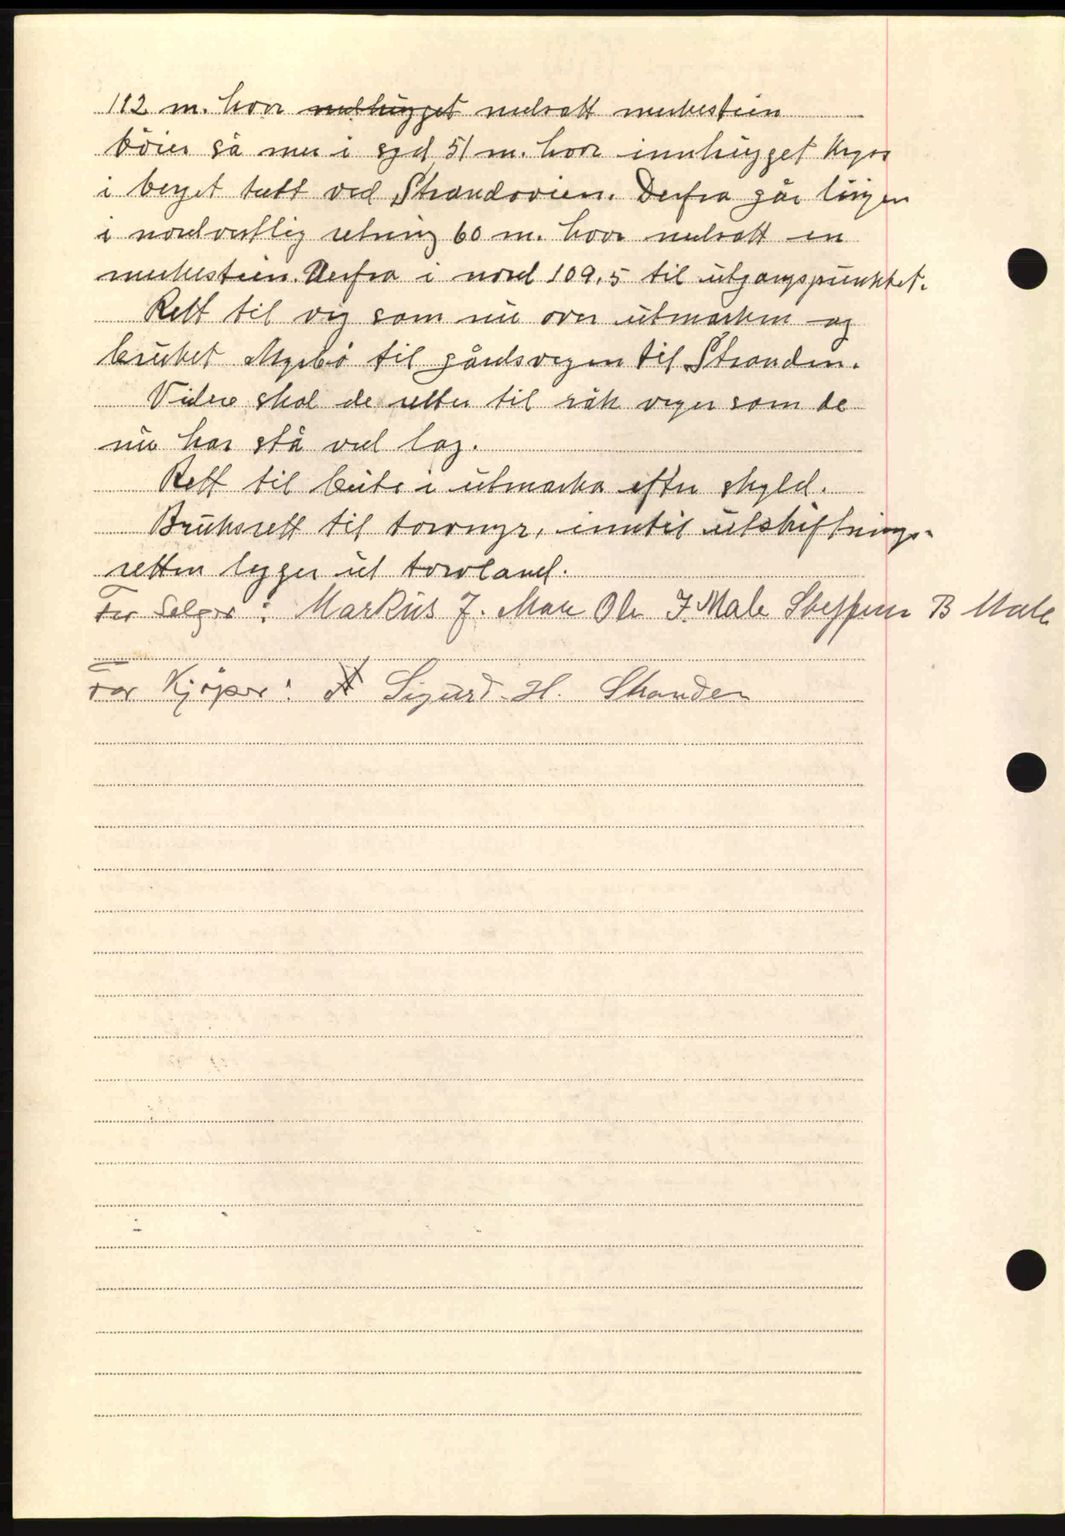 112 m. hvor nedhugget nedsatt merkestein
böier så mer i syd 51 m. hvor innhugget kryss
i berget tett ved Strandsveien. Derfra går linjen
i nordvestlig retning 60 m. hvor nedsatt en
merkestein. Derfra i nord 109,5 til utgangspunktet.
Rett til veg som nu over utmarken og
bruket Myrbö til gårdsvegen til Stranden.
Videre skal de retter til råk veger som de
nu har stå ved lag.
Rett til beite i utmarka efter skyld.
Bruksrett til torvmyr, inntil utskiftnings-
retten legger ut torvland.
For Selger: Markus J. Male Ole J. Male Steffen B Male
For Kjöper: Sigurd H. Stranden